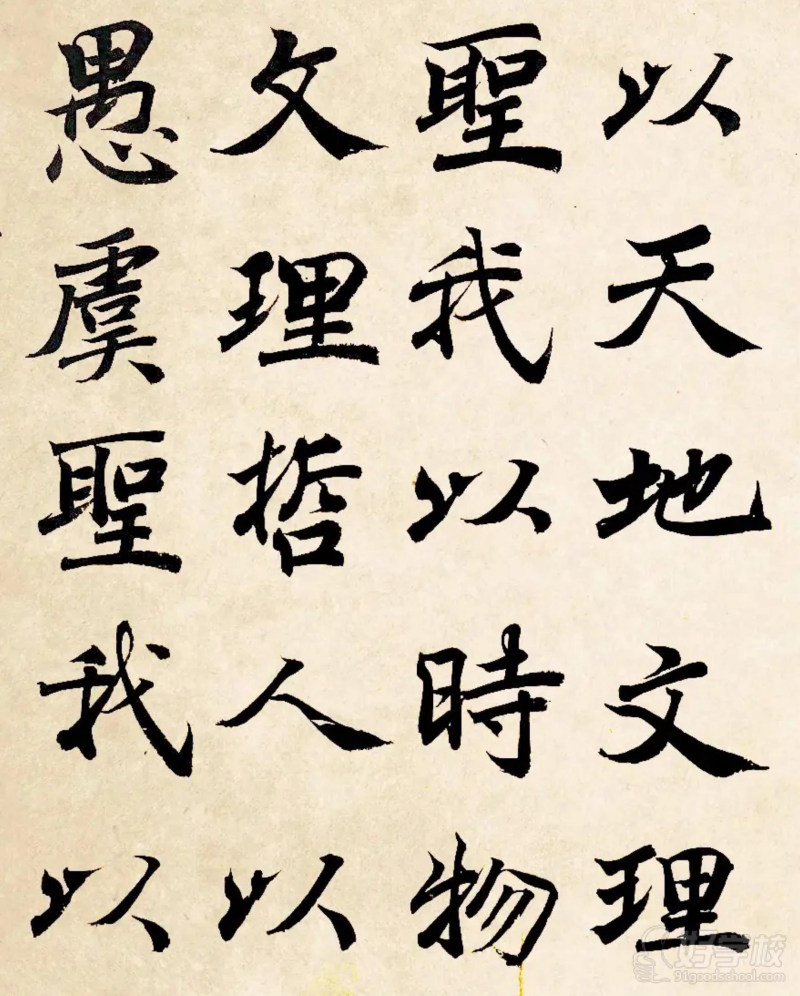 以天地文理
聖我以時物
文理哲人以
愚虞聖我以
好学校
91goodschool.com